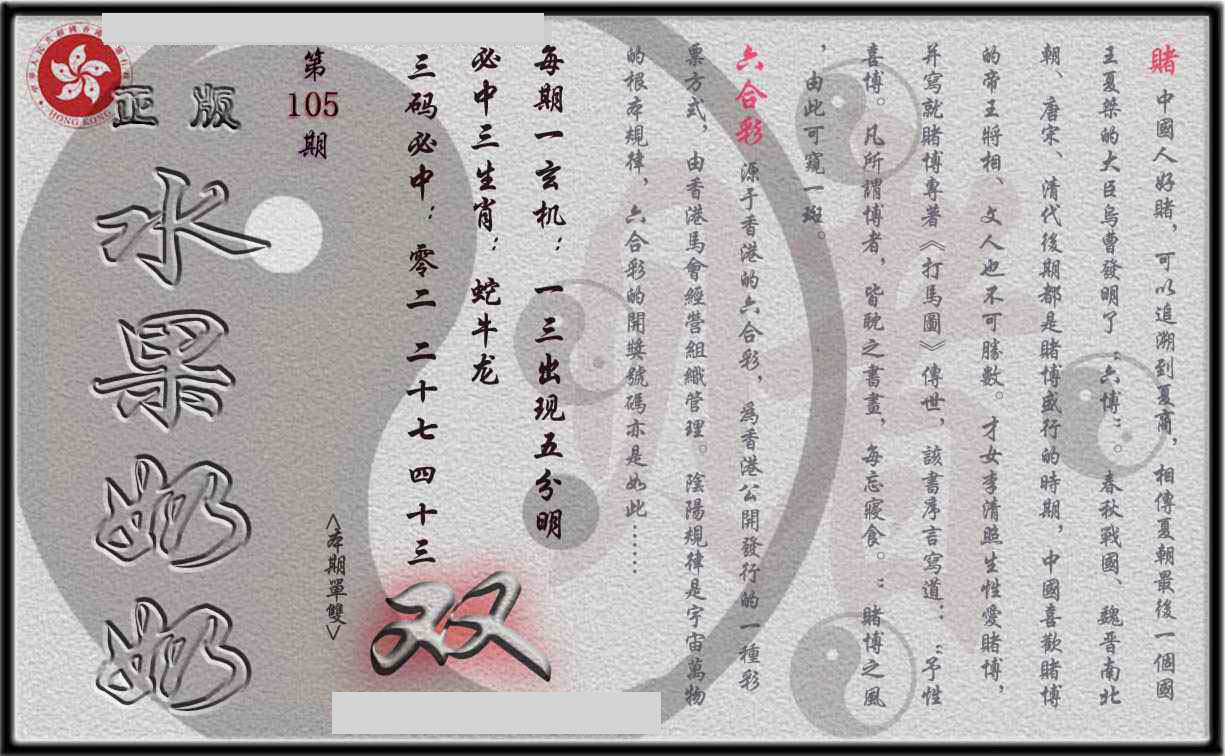 賭 中國人好賭，可以追溯到夏商，相傳夏朝最後一個國
王夏桀的大臣烏曹發明了“六博”。春秋戰國、魏晉南北
朝、唐宋、清代後期都是賭博盛行的時期，中國喜歡賭博
的帝王將相、文人也不可勝數。才女李清照生性愛賭博，
并寫就賭博專著《打馬圖》傳世，該書序言寫道：“予性
喜博。凡所謂博者，皆耽之書畫，每忘寢食。”賭博之風
，由此可窺一斑。
六合彩 源于香港的六合彩，為香港公開發行的一種彩
票方式，由香港馬會經營組織管理。陰陽規律是宇宙萬物
的根本規律，六合彩的開獎號碼亦是如此……
每期一玄机：一三出现五分明
必中三生肖：蛇牛龙
三码必中：零二 二十七 四十三
双
<本期單雙>
第105期
正版
水果奶奶
HONG KONG